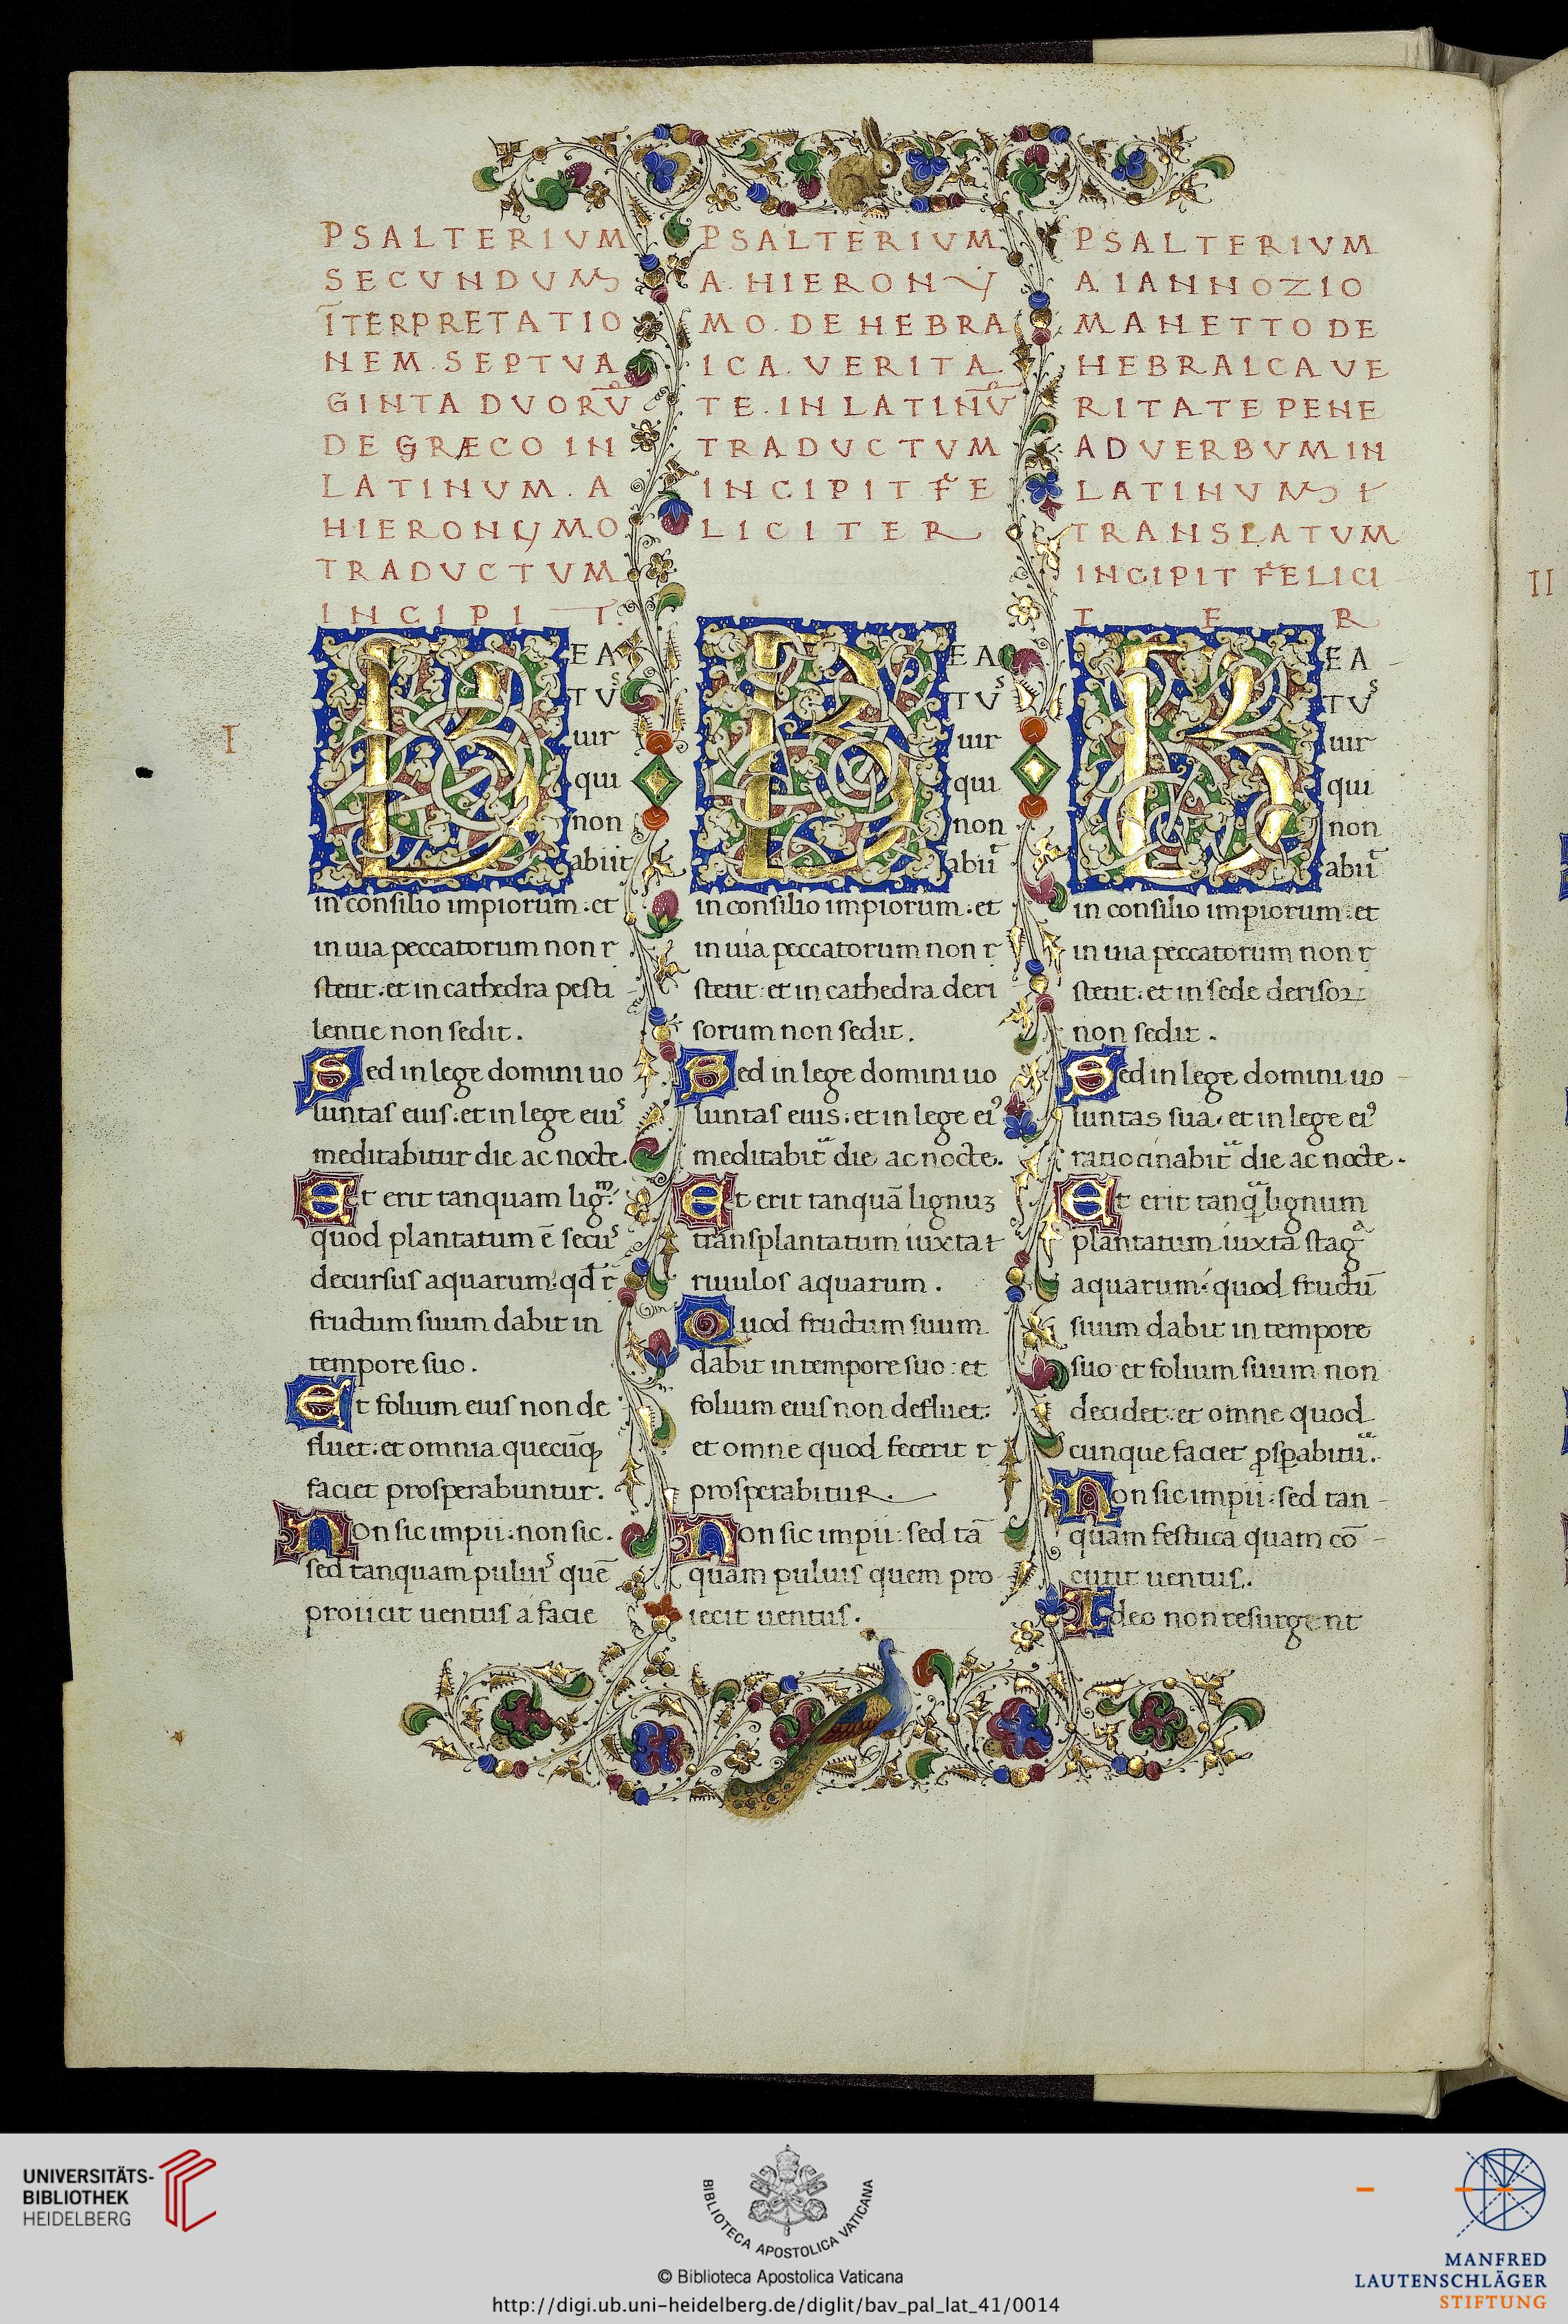 PSALTERIVM
SECVNDVM
ĪTERPRETATIO
NEM. SEPTVA
GINTA DVORV̄
DE GRÆCO IN
LATINVM. A
HIERONYMO
TRADVCTVM
INCIPIT.
I
BEA
TVˢ
uir
qui
non
abiit
in consilio impiorum: et
in uia peccatorum non r
stetit: et in cathedra pesti
lentie non sedit.
Sed in lege domini uo
luntas eius: et in lege eiuˢ
meditabitur die ac nocte.
Et erit tanquam ligᵐ:
quod plantatum ē secuˢ
decursus aquarum: qđ r̄
fructum suum dabit in
tempore suo.
Et folium eius non de
fluet: et omnia quecūqꝫ
faciet prosperabuntur.
Non sic impii: non sic.
sed tanquam puluiˢ quē
proiicit uentus a facie
PSALTERIVM
A. HIERONY
MO. DE HEBRA
ICA. VERITA
TE. IN LATINV̄
TRADVCTVM
INCIPIT FE
LICITER
BEA
TVˢ
uir
qui
non
abiit̄
in consilio impiorum: et
in uia peccatorum non r
stetit: et in cathedra deri
sorum non sedit.
Sed in lege domini uo
luntas eius: et in lege eiꝰ
meditabit᷑ die ac nocte.
Et erit tanquā lignuꝫ
transplantatum iuxta t
riuulos aquarum.
Quod fructum suum
dabit in tempore suo: et
folium eius non defluet:
et omne quod fecerit r
prosperabitur.
Non sic impii: sed tā
quam puluis quem pro
iecit uentus.
PSALTERIVM
A IANNOZIO
MANETTO DE
HEBRAICA VE
RITATE PENE
AD VERBVM IN
LATINVM t
TRANSLATVM
INCIPIT FELICI
TER
BEA
TVˢ
uir
qui
non
abiit̄
in consilio impiorum: et
in uia peccatorum non r
stetit: et in sede derisoꝝ
non sedit.
Sed in lege domini uo
luntas sua: et in lege eiꝰ
ratiocinabit᷑ die ac nocte.
Et erit tanqᷓ lignum
plantatum iuxta stagᵃ
aquarum: quod fructū
suum dabit in tempore
suo et folium suum non
decidet: et omne quod
cunque faciet ꝓsꝑabitu᷑.
Non sic impii: sed tan
quam festuca quam cō
cutit uentus.
Ideo non resurgent
II
UNIVERSITÄTS-
BIBLIOTHEK
HEIDELBERG
BIBLIOTECA APOSTOLICA VATICANA
© Biblioteca Apostolica Vaticana
http://digi.ub.uni-heidelberg.de/diglit/bav_pal_lat_41/0014
MANFRED
LAUTENSCHLÄGER
STIFTUNG